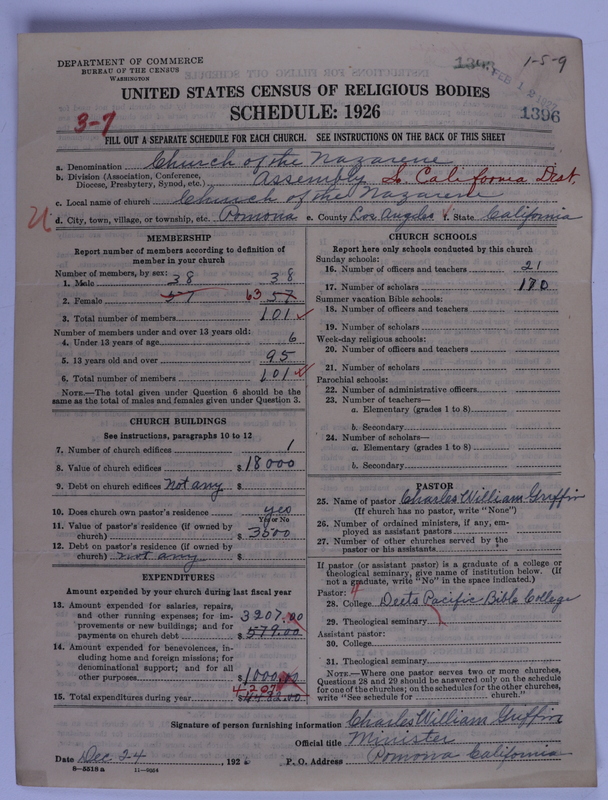 DEPARTMENT OF COMMERCE
BUREAU OF THE CENSUS
WASHINGTON
1-5-9
1396
UNITED STATES CENSUS OF RELIGIOUS BODIES
SCHEDULE: 1926
1396
3-7
FILL OUT A SEPARATE SCHEDULE FOR EACH CHURCH. SEE INSTRUCTIONS ON THE BACK OF THIS SHEET
a. Denomination Church of the Nazarene
b. Division (Association, Conference, Diocese, Presbytery, Synod, etc.) Assembly S. California Dist.
c. Local name of church Church of the Nazarene
d. City, town, village, or township, etc. Pomona e. County Los Angeles f. State California
MEMBERSHIP
Report number of members according to definition of member in your church
Number of members, by sex:
1. Male 38 38
2. Female 57 63 57
3. Total number of members 101
Number of members under and over 13 years old:
4. Under 13 years of age 6
5. 13 years old and over 95
6. Total number of members 101
NOTE.—The total given under Question 6 should be same as the total of males and females given under Question 3.
CHURCH BUILDINGS
See instructions, paragraphs 10 to 12
7. Number of church edifices 1
8. Value of church edifices $18000
9. Debt on church edifices Not any $
10. Does church own pastor's residence yes
Yes or No
11. Value of pastor's residence (if owned by church) $3500
12. Debt on pastor's residence (if owned by church) not any $
EXPENDITURES
Amount expended by your church during last fiscal year
13. Amount expended for salaries, repairs, and other running expenses; for improvements or new buildings; and for payments on church debt 3207.00
$579.00
14. Amount expended for benevolences, including home and foreign missions; for denominational support; and for all other purposes $1000.00
15. Total expenditures during year 4207
CHURCH SCHOOLS
Report here only schools conducted by this church
Sunday schools:
16. Number of officers and teachers 21
17. Number of scholars 180
Summer vacation Bible schools:
18. Number of officers and teachers
19. Number of scholars
Week-day religious schools:
20. Number of officers and teachers
21. Number of scholars
Parochial schools:
22. Number of administrative officers
23. Number of teachers—
a. Elementary (grades 1 to 8)
b. Secondary
24. Number of scholars—
a. Elementary (grades 1 to 8)
b. Secondary
PASTOR
25. Name of pastor Charles William Griffin
(If church has no pastor, write "None")
26. Number of ordained ministers, if any, employed as assistant pastors
27. Number of other churches served by the pastor or his assistants
If pastor (or assistant pastor) is a graduate of a college or theological seminary, give name of institution below. (If not a graduate, write "No" in the space indicated.)
Pastor: 4
28. College Deets Pacific Bible College
29. Theological seminary
Assistant pastor:
30. College
31. Theological seminary
NOTE.—Where one pastor serves two or more churches, Questions 28 and 29 should be answered only on the schedule for one of the churches; on the schedules for the other churches, write "See schedule for church."
Signature of person furnishing information Charles William Griffin
Official title Minister
Date Dec 24 1926 P. O. Address Pomona California
8—5518 a 11—9564